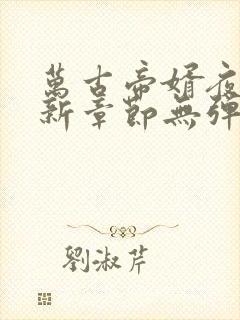 萬古帝婿夜
新章節無彈
劉淑芹